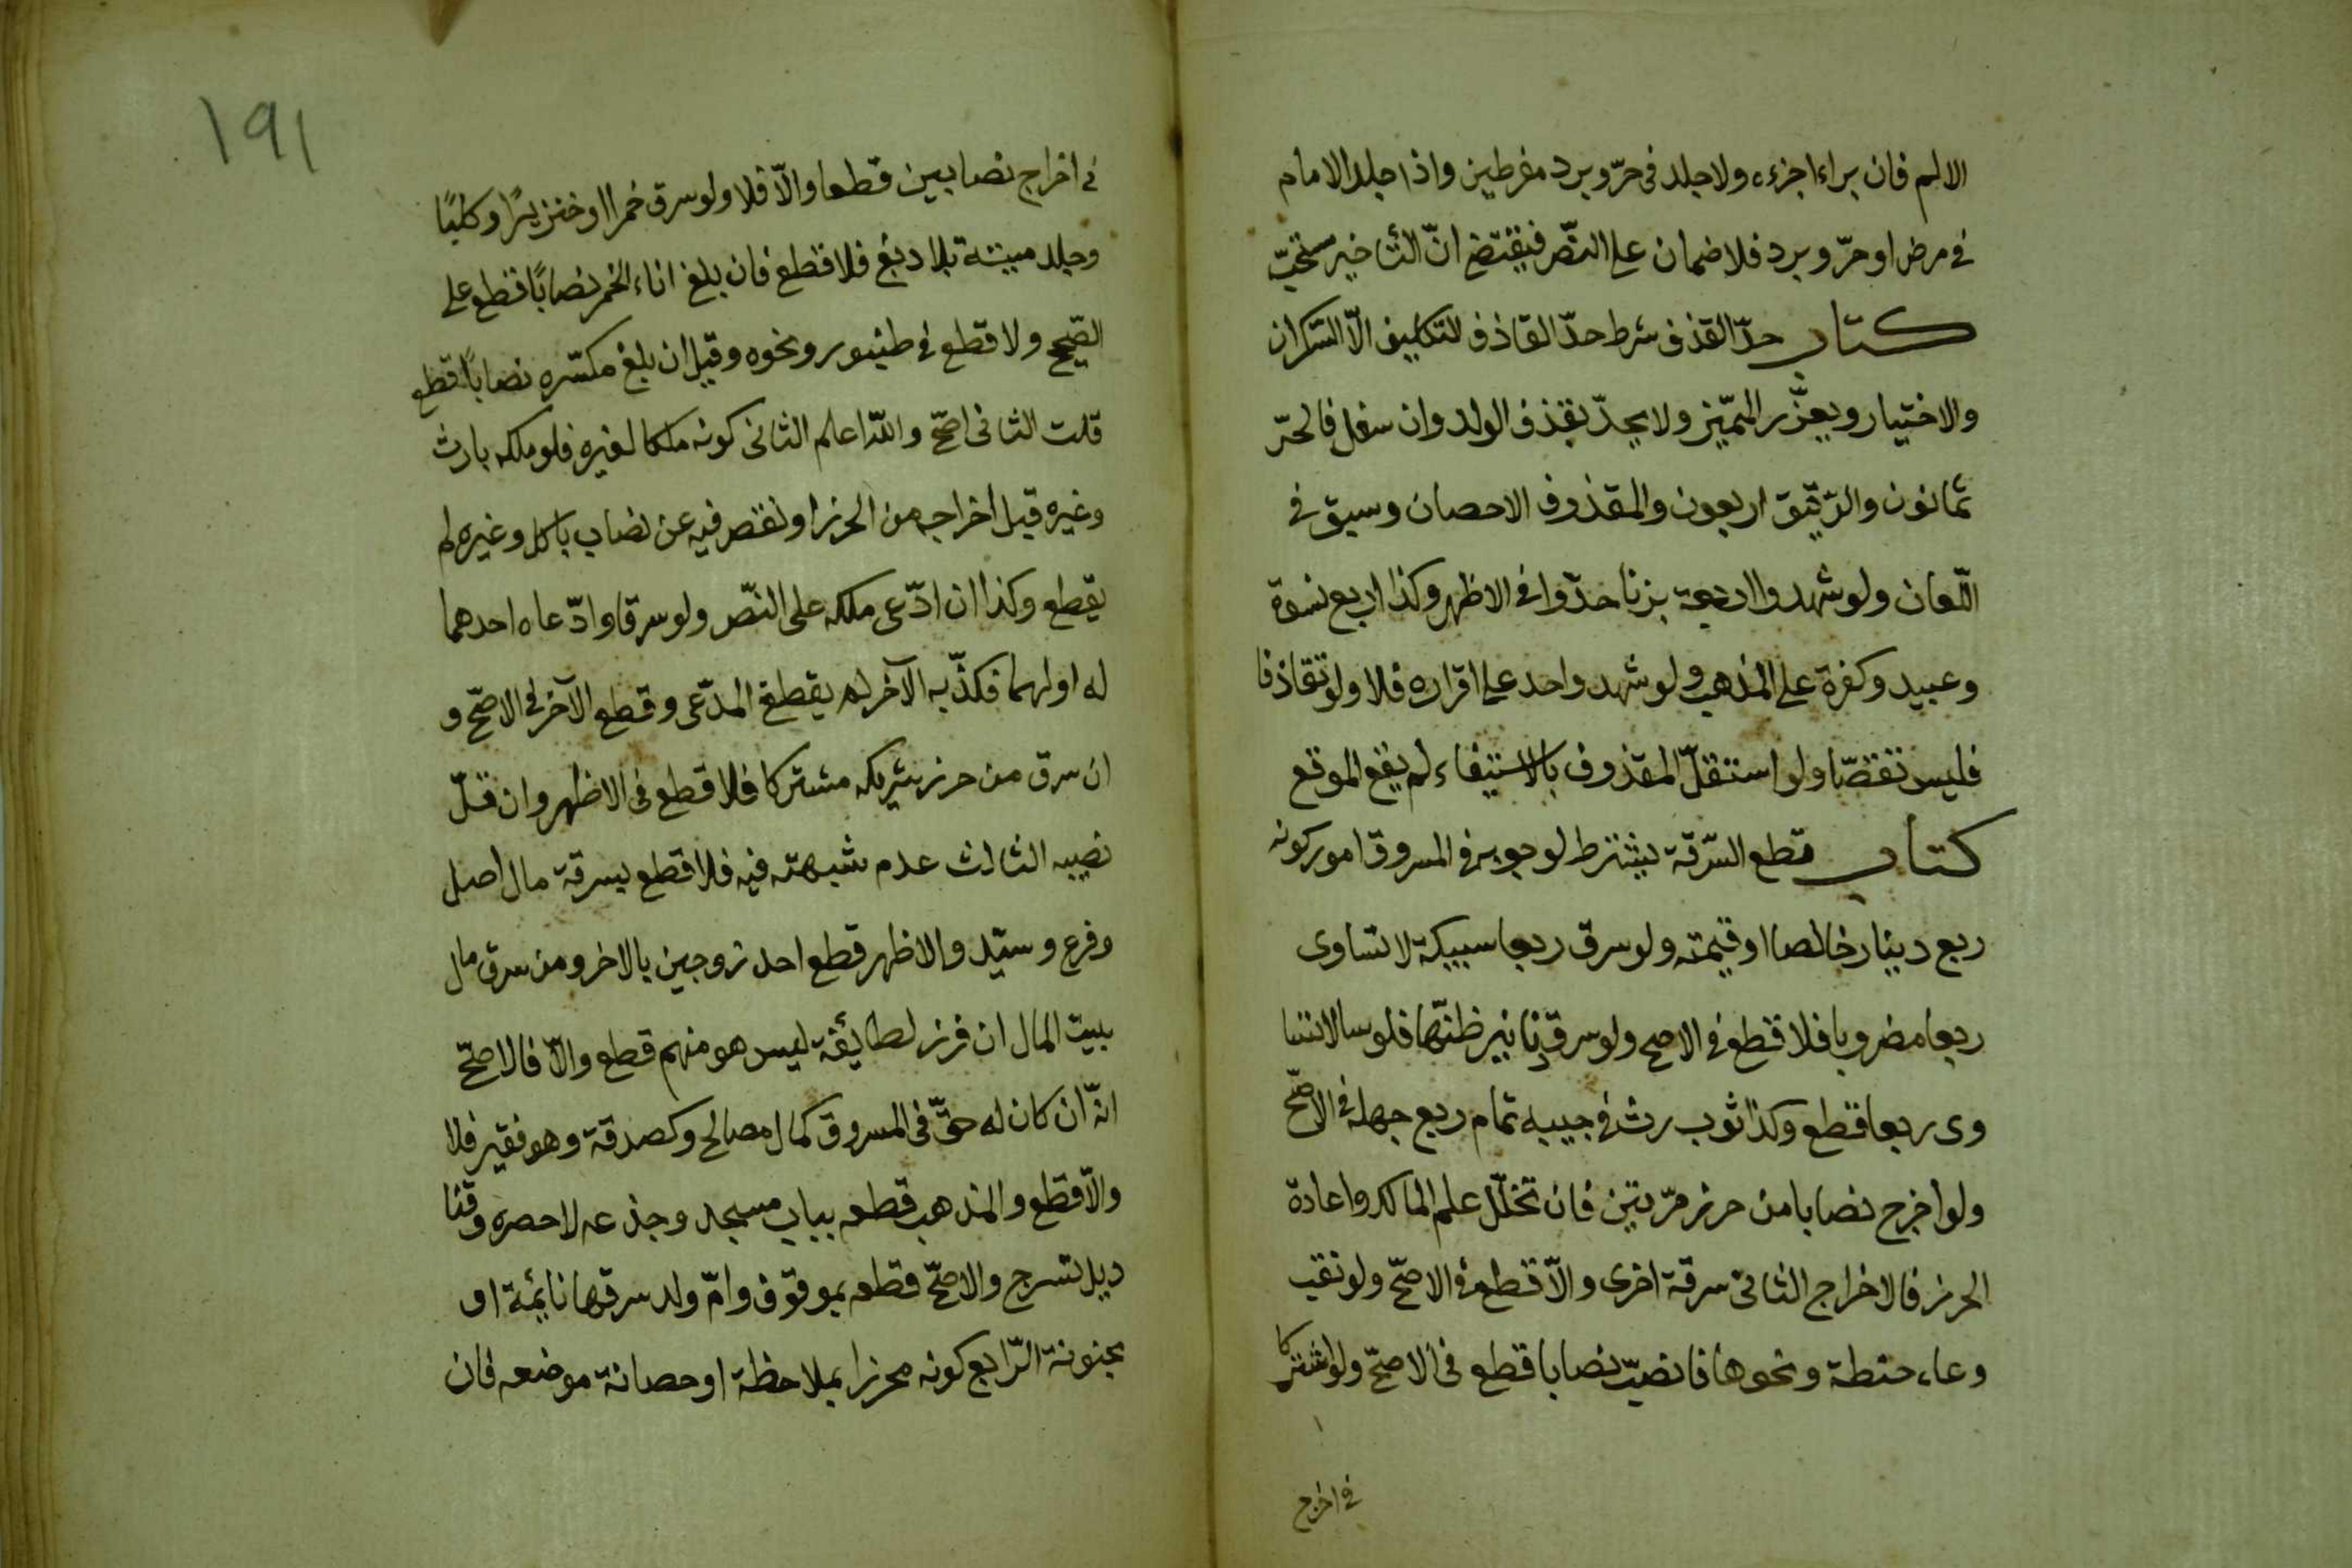 الالم فان براء اجزءه ولا جلد فى حرّ وبرد مفرطين واذا جلد الامام
فى مرض او حرّ وبرد فلا ضمان على النصّ فيقتضى انّ التأخير مستحبّ
كتاب حدّ القذف شرط حدّ القاذف التكليف الّا السّكران
والاختيار ويعزّر المميّز ولا يحدّ بقذف الولد وان سفل فالحرّ
ثمانون والرّقيق اربعون والمقذوف الاحصان وسبق فى
اللّعان ولو شهدوا اربعة بزنا حدّوا فى الاظهر وكذا اربع نسوة
وعبيد وكفرة على المذهب ولو شهد واحد على اقراره فلا ولو تقاذفا
فليس تقصّا ولو استقلّ المقذوف بالاستيفاء لم يقع الموقع
كتاب قطع السّرقة يشترط لوجوبه فى المسروق امور كونه
ربع دينار خالصا او قيمته ولو سرق ربعا سبيكة لا تساوى
ربعا مضروبا فلا قطع فى الاصح ولو سرق دنانير ظنّها فلوسا لا تسا
وى ربعا قطع وكذا ثوب رث فى جيبه تمام ربع جهله فى الاصحّ
ولو اخرج نصابا من حرز مرّتين فان تخلّل علم المالك واعادة
الحرز فالاخراج الثانى سرقة اخرى والّا قطع فى الاصحّ ولو نقب
وعاء حنطة ونحوها فانصبّ نصابا قطع فى الاصحّ ولو اشتركا
فى اخراج
١٩١
فى اخراج نصابين قطعا والّا فلا ولو سرق خمرا او خنزيرًا وكلبًا
وجلد ميتة بلا دبغ فلا قطع فان بلغ اناء الخمر نصابًا قطع على
الصّحيح ولا قطع فى طنبور ونحوه وقيل ان بلغ مكسّره نصابًا قطع
قلت الثانى اصحّ والله اعلم الثانى كونه ملكا لغيره فلو ملكه بارث
وغيره قبل اخراجه من الحرز او نقص فيه عن نصاب باكل وغيره لم
يقطع وكذا ان ادّعى ملكه على النصّ ولو سرقا وادّعاه احدهما
له او لهما فكذّبه الآخر لم يقطع المدّعى وقطع الآخر فى الاصحّ و
ان سرق من حرز شريكه مشتركا فلا قطع فى الاظهر وان قلّ
نصيبه الثالث عدم شبهته فيه فلا قطع بسرقة مال اصل
وفرع وسيّد والاظهر قطع احد زوجين بالاخر ومن سرق مال
بيت المال ان فرز لطائفة ليس هو منهم قطع والّا فالاصحّ
انّه ان كان له حقّ فى المسروق كمال مصالح وكصدقة وهو فقير فلا
والّا قطع والمذهب قطعه بباب مسجد وجذعه لا حصره وقنا
ديل تسرج والاصحّ قطعه بموقوف وامّ ولد سرقها نائمة او
مجنونة الرّابع كونه محرزا بملاحظة او حصانة موضعه فان